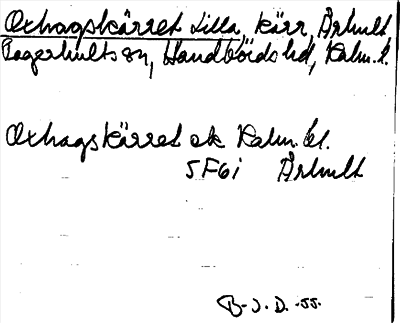 Oxhagskärret Lilla, kärr, Århult,
Fagerhults sn, Handbörds hd, Kalm. l.
Oxhagskärret ek Kalm. bl.
5F6i Århult
B.J.D. -55.